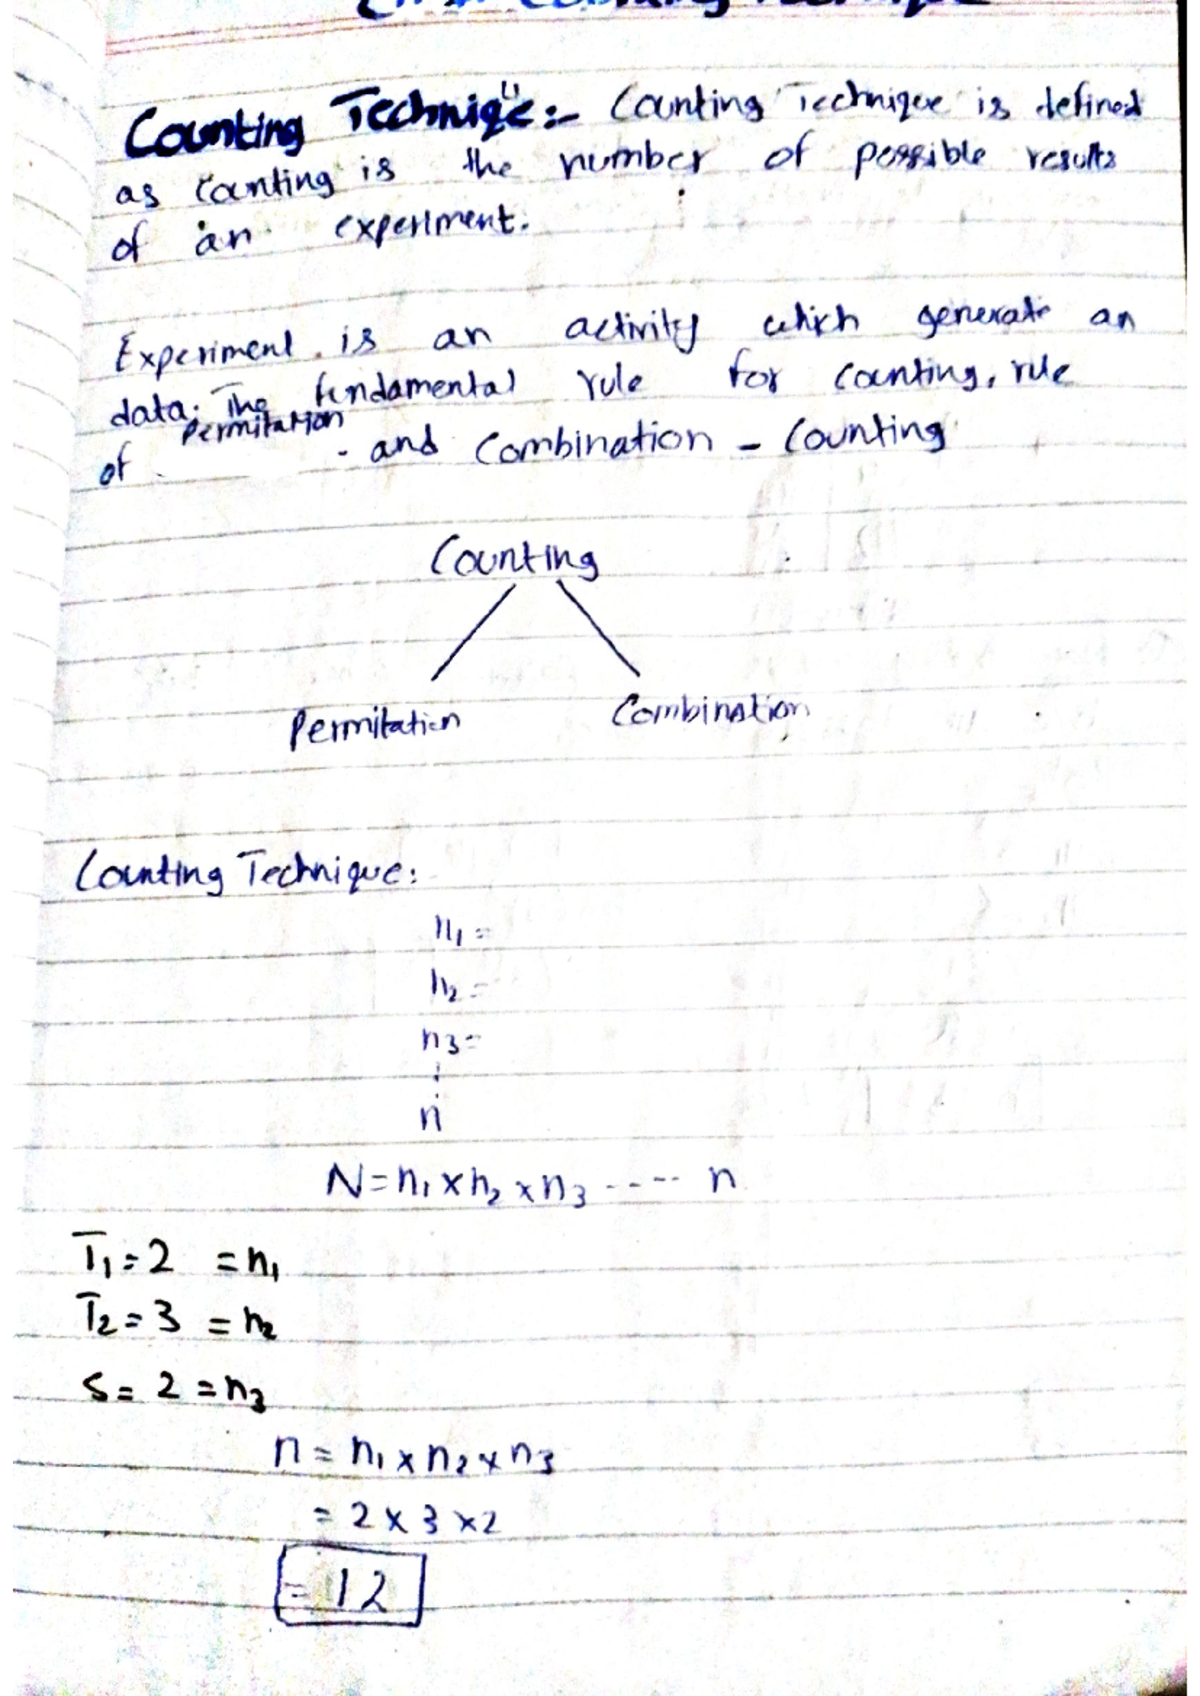 Counting Technique
Counting Techniqe:- Counting Technique is defined
as counting is the number of possible results
of an experiment.
Experiment is an activity which generate an
data. The fundamental rule for counting, rule
of Permitation and Combination - Counting
Counting
Permitation Combination
Counting Technique:
n₁ =
n₂ =
n₃ =
⋮
n
N = n₁ × n₂ × n₃ ---- n
T₁ = 2 = n₁
T₂ = 3 = n₂
S = 2 = n₃
n = n₁ × n₂ × n₃
= 2 × 3 × 2
= 12